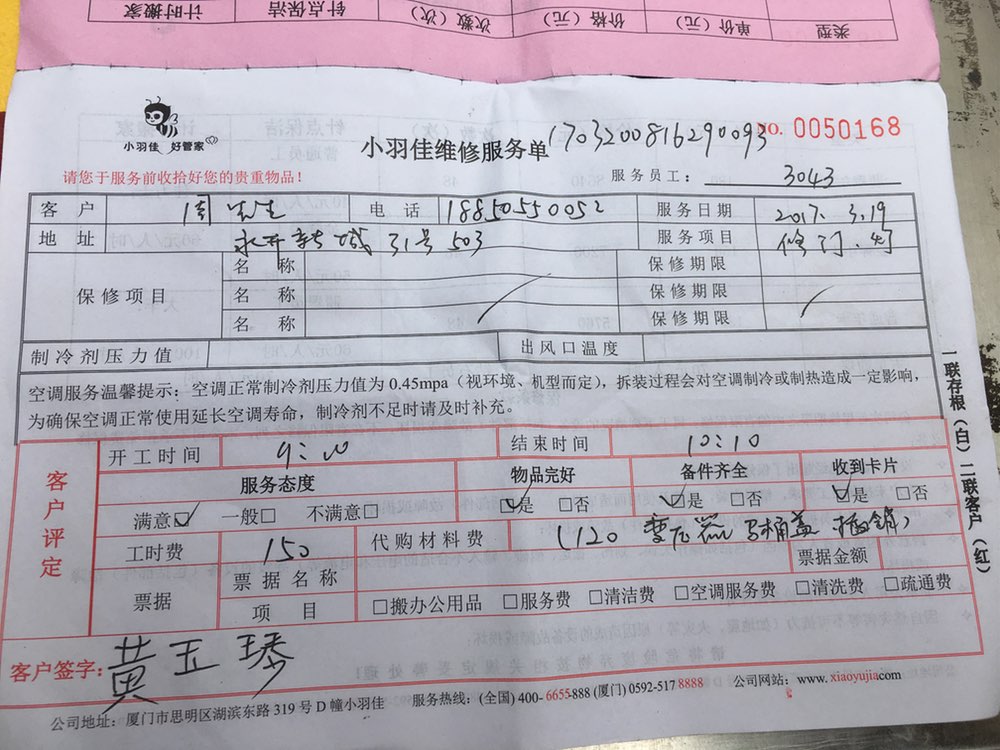 类型 单价（元） 价格（元） 次数（次） 针点保洁 计时搬家
小羽佳 好管家
小羽佳维修服务单 1703200816290093 NO. 0050168
请您于服务前收拾好您的贵重物品！ 服务员工： 3043
客户 周先生 电话 18850550052 服务日期 2017. 3.19
地址 新城31号503 服务项目 修门、灯
保修项目 名称 保修期限
名称 保修期限
名称 保修期限
制冷剂压力值 出风口温度
空调服务温馨提示：空调正常制冷剂压力值为0.45mpa（视环境、机型而定），拆装过程会对空调制冷或制热造成一定影响，
为确保空调正常使用延长空调寿命，制冷剂不足时请及时补充。
一联存根（白）二联客户（红）
客户评定
开工时间 9:00 结束时间 10:10
服务态度 物品完好 备件齐全 收到卡片
满意☑ 一般□ 不满意□ ☑是 □否 ☑是 □否 ☑是 □否
工时费 150 代购材料费 （120 变压器 马桶盖 插销） 票据金额
票据 票据名称
项目 □搬办公用品 □服务费 □清洁费 □空调服务费 □清洗费 □疏通费
客户签字：黄玉琴
公司地址：厦门市思明区湖滨东路319号D幢小羽佳 服务热线：(全国) 400-6655-888 (厦门) 0592-517 8888 公司网站：www.xiaoyujia.com